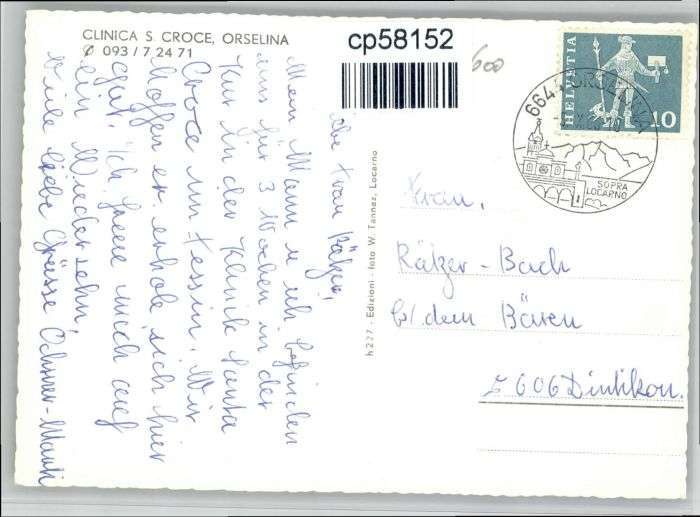 CLINICA S. CROCE, ORSELINA
✆ 093 / 7 24 71
cp58152
600
HELVETIA
10
6644 ORSELINA
SOPRA
LOCARNO
Liebe Frau Rätzer,
Mein Mann u. ich befinden
uns für 3 Wochen in der
Kur in der Klinik Santa
Croce im Tessin. Wir
hoffen er erhole sich hier
gut. Ich freue mich auf
ein Wiedersehn,
Viele liebe Grüsse Ochsner-Marti
h 277 - Edizioni - foto W. Tannaz, Locarno
Frau,
Rätzer-Bach
b/ dem Bären
5606 Dintikon.